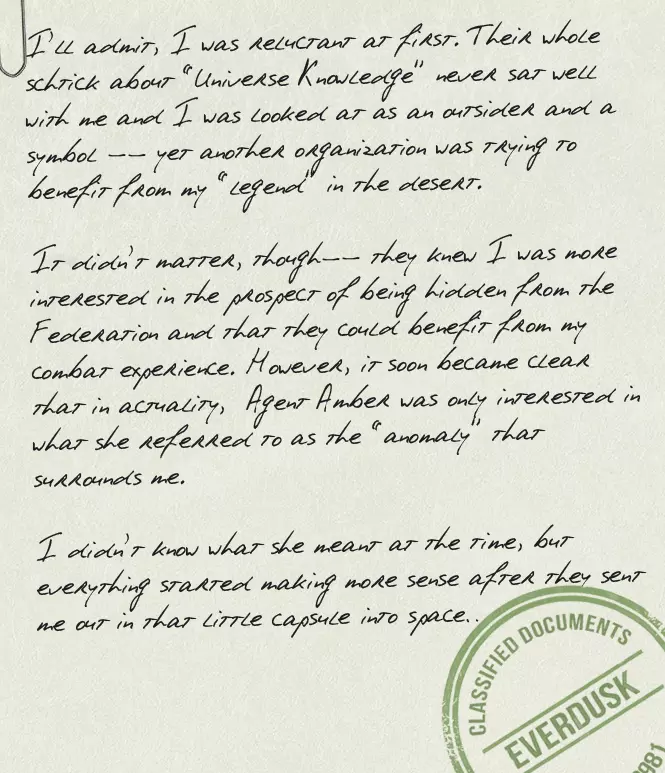 I'll admit, I was reluctant at first. Their whole
schtick about "Universe Knowledge" never sat well
with me and I was looked at as an outsider and a
symbol -- yet another organization was trying to
benefit from my "legend" in the desert.
It didn't matter, though-- they knew I was more
interested in the prospect of being hidden from the
Federation and that they could benefit from my
combat experience. However, it soon became clear
that in actuality, Agent Amber was only interested in
what she referred to as the "anomaly" that
surrounds me.
I didn't know what she meant at the time, but
everything started making more sense after they sent
me out in that little capsule into space..
CLASSIFIED DOCUMENTS
EVERDUSK